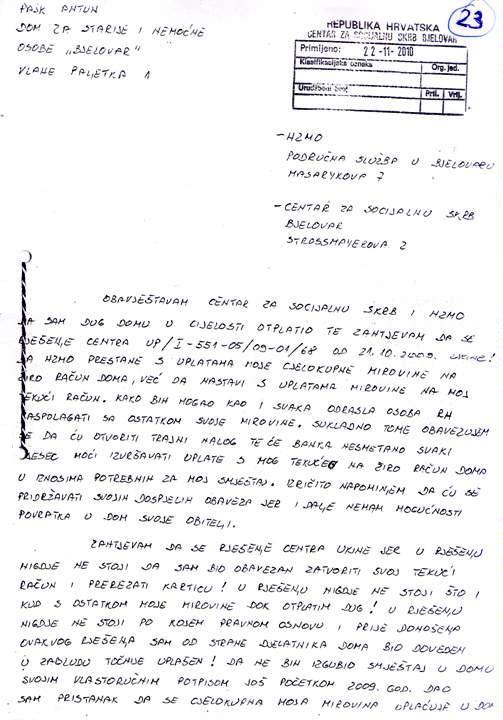 PAJK ANTUN
DOM ZA STARIJE I NEMOĆNE
OSOBE "BJELOVAR"
VLAHE PALJETKA 1
23
REPUBLIKA HRVATSKA
CENTAR ZA SOCIJALNU SKRB BJELOVAR
Primijeno: 22-11-2010
Klasifikacijska oznaka Org. jed.
Urudžbeni broj Pril. Vrij.
- HZMO
PODRUČNA SLUŽBA U BJELOVARU
MASARYKOVA 7
- CENTAR ZA SOCIJALNU SKRB
BJELOVAR
STROSSMAYEROVA 2
OBAVJEŠTAVAM CENTAR ZA SOCIJALNU SKRB I HZMO
DA SAM DUG DOMU U CIJELOSTI OTPLATIO TE ZAHTJEVAM DA SE
RJEŠENJE CENTRA UP/I-551-05/09-01/68 OD 21.10.2009. UKINE!
DA HZMO PRESTANE S UPLATAMA MOJE CJELOKUPNE MIROVINE NA
ŽIRO RAČUN DOMA, VEĆ DA NASTAVI S UPLATAMA MIROVINE NA MOJ
TEKUĆI RAČUN. KAKO BIH MOGAO KAO I SVAKA ODRASLA OSOBA RH
RASPOLAGATI SA OSTATKOM SVOJE MIROVINE. SUKLADNO TOME OBAVEZUJEM
SE DA ĆU OTVORITI TRAJNI NALOG TE ĆE BANKA NESMETANO SVAKI
MJESEC MOĆI IZVRŠAVATI UPLATE S MOG TEKUĆEG NA ŽIRO RAČUN DOMA
U IZNOSIMA POTREBNIH ZA MOJ SMJEŠTAJ. IZRIČITO NAPOMINJEM DA ĆU SE
PRIDRŽAVATI SVOJIH DOSPJELIH OBAVEZA JER I DALJE NEMAM MOGUĆNOSTI
POVRATKA U DOM SVOJE OBITELJI.
ZAHTJEVAM DA SE RJEŠENJE CENTRA UKINE JER U RJEŠENJU
NIGDJE NE STOJI DA SAM BIO OBAVEZAN ZATVORITI SVOJ TEKUĆI
RAČUN I PREREZATI KARTICU! U RJEŠENJU NIGDJE NE STOJI ŠTO I
KUD S OSTATKOM MOJE MIROVINE DOK OTPLATIM DUG! U RJEŠENJU
NIGDJE NE STOJI PO KOJEM PRAVNOM OSNOVU I PRIJE DONOŠENJA
OVAKVOG RJEŠENJA SAM OD STRANE DJELATNIKA DOMA BIO DOVEDEN
U ZABLUDU TOČNIJE UPLAŠEN! DA NE BIH IZGUBIO SMJEŠTAJ U DOMU
SVOJIM VLASTORUČNIM POTPISOM JOŠ POČETKOM 2009. GOD. DAO
SAM PRISTANAK DA SE CJELOKUPNA MOJA MIROVINA UPLAĆUJE U